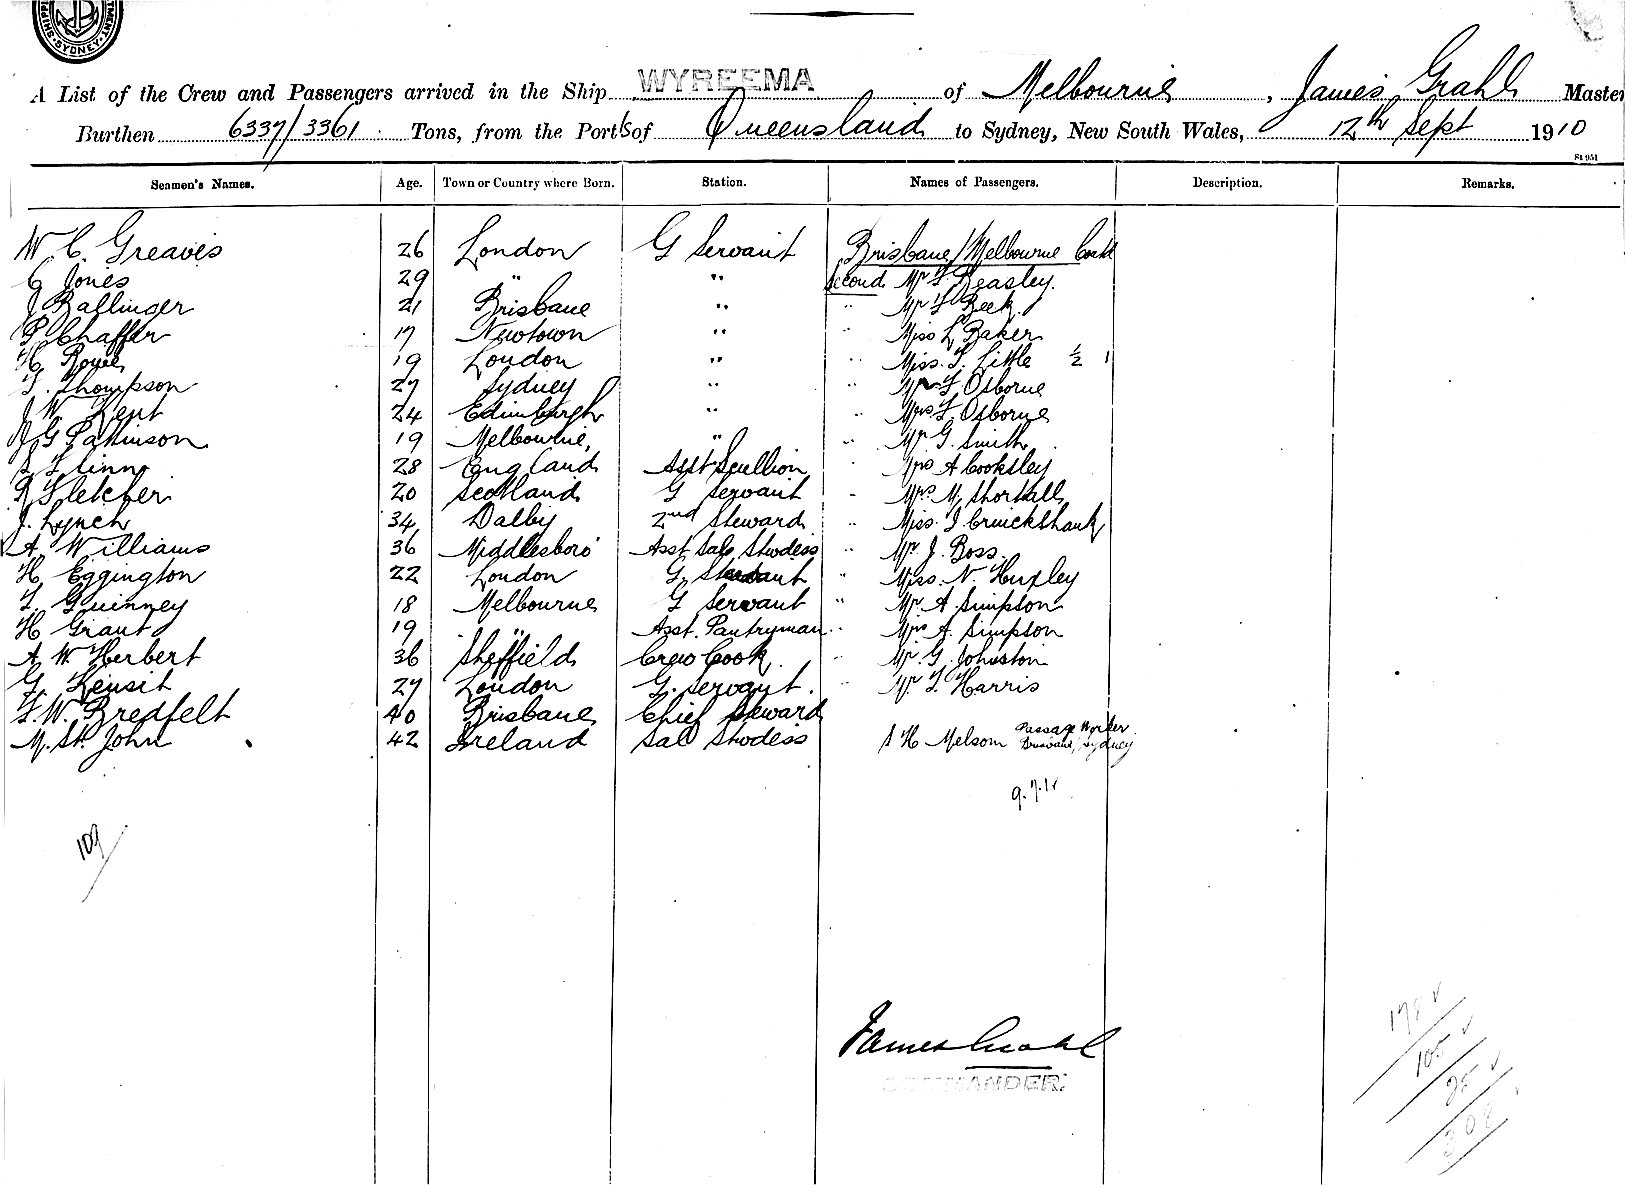 SYDNEY
A List of the Crew and Passengers arrived in the Ship WYREEMA of Melbourne, James Grahl Master
Burthen 6337/3361 Tons, from the Port s of Queensland to Sydney, New South Wales, 12th Sept 1910
St 951
Seamen's Names. Age. Town or Country where Born. Station. Names of Passengers. Description. Remarks.
W. C. Greaves 26 London G Servant Brisbane/Melbourne
G Jones 29 " " Second Mr Beasley.
J Ballinger 21 Brisbane " " Mr Beek
P Chaffer 17 Newtown " " Miss L Baker
H 19 London " " Miss. Little ½ 1
T. Thompson 27 Sydney " " Mr F Osborne
J W Kent 24 Edinburgh " " Mrs F Osborne
G Parkinson 19 Melbourne, " " Mr G. Smith
Flinn 28 England Asst Scullion " Mrs A Cooksley
R Fletcher 20 Scotland G Servant " Mrs M. Shortall
J. Lynch 34 Dalby 2nd Steward " Miss. J Cruickshank
A. Williams 36 Middlesboro' Asst Sal Stwdess " Mr J. Ross.
H. Eggington 22 London G. Servant " Miss. N. Huxley
T. Guinney 18 Melbourne G Servant " Mr A Simpson
H Grant 19 " Asst. Pantryman " Mrs A. Simpson
A. W. Herbert 36 Sheffield Crew Cook. " Mr. G. Johnston
G Kensit 27 London G. Servant. " Mr. T. Harris
F. W. Bredfelt 40 Brisbane Chief Steward
M. St. John 42 Ireland Sal Stwdess H Melsom Passage Worker
Brisbane/Sydney
109
James Grahl
COMMANDER.
105
28
308